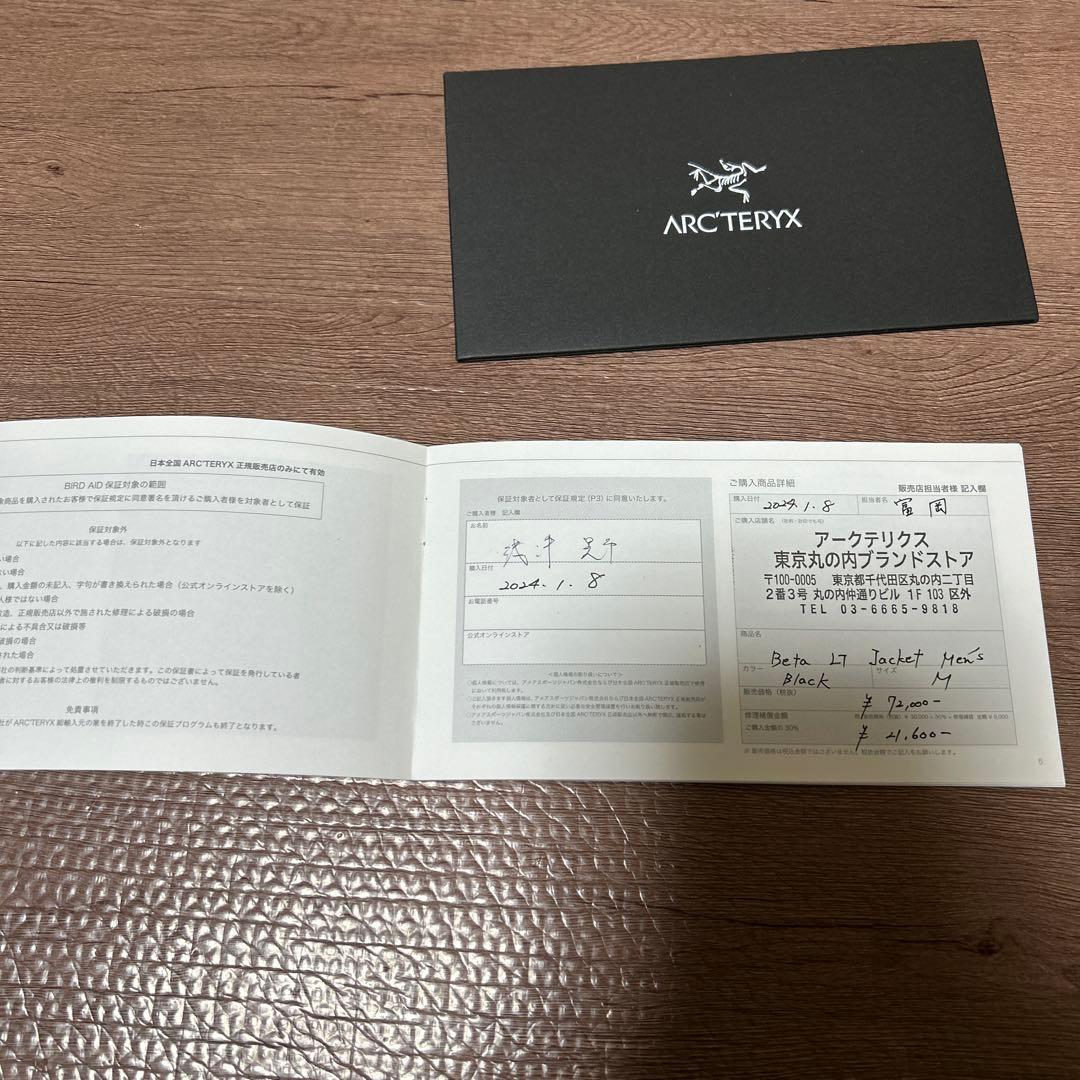 ARC'TERYX
日本全国 ARC'TERYX 正規販売店のみにて有効
BIRD AID 保証対象の範囲
象商品を購入されたお客様で保証規定に同意署名を頂けるご購入者様を対象者として保証
保証対象外
以下に記した内容に該当する場合は、保証対象外となります
い場合
ない場合
、購入金額の未記入、字句が書き換えられた場合（公式オンラインストアを除く）
人様ではない場合
改造、正規販売店以外で施された修理による破損の場合
による不具合又は破損等
破損の場合
された場合
社の判断基準によって処置させていただきます。この保証書によって保証を発行している者
者に対するお客様の法律上の権利を制限するものではございません。
免責事項
社が ARC'TERYX 総輸入元の業を終了した時この保証プログラムも終了となります。
保証対象者として保証規定（P3）に同意いたします。
ご購入者様 記入欄
お名前
購入日付
2024. 1. 8
お電話番号
公式オンラインストア
＜個人情報の取り扱いについて＞
ご購入商品詳細
販売店担当者様 記入欄
購入日付 2024. 1. 8 担当者名 富岡
ご購入店舗名（社判／台印でも可）
アークテリクス
東京丸の内ブランドストア
〒100-0005 東京都千代田区丸の内二丁目
2番3号 丸の内仲通りビル 1F 103 区外
TEL 03-6665-9818
商品名
Beta LT Jacket Men's
カラー Black サイズ M
販売価格（税抜） ¥ 72,000-
修理補償金額
ご購入金額の30% ¥ 21,600-
※ 販売価格は税込金額ではございません。税抜金額でご記入をお願いします。
5